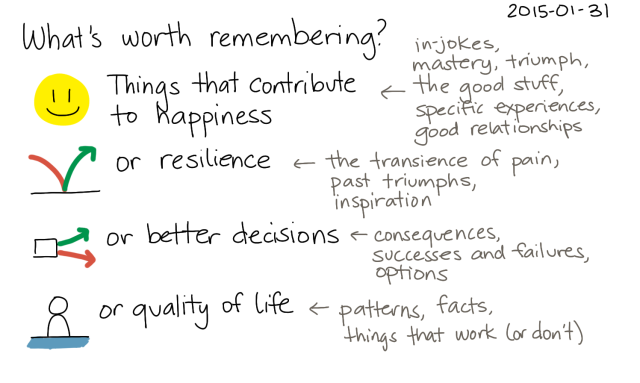 2015-01-31
What's worth remembering?
Things that contribute
to happiness
← in-jokes,
mastery, triumph,
the good stuff,
specific experiences,
good relationships
or resilience ← the transience of pain,
past triumphs,
inspiration
or better decisions ← consequences,
successes and failures,
options
or quality of life ← patterns, facts,
things that work (or don't)